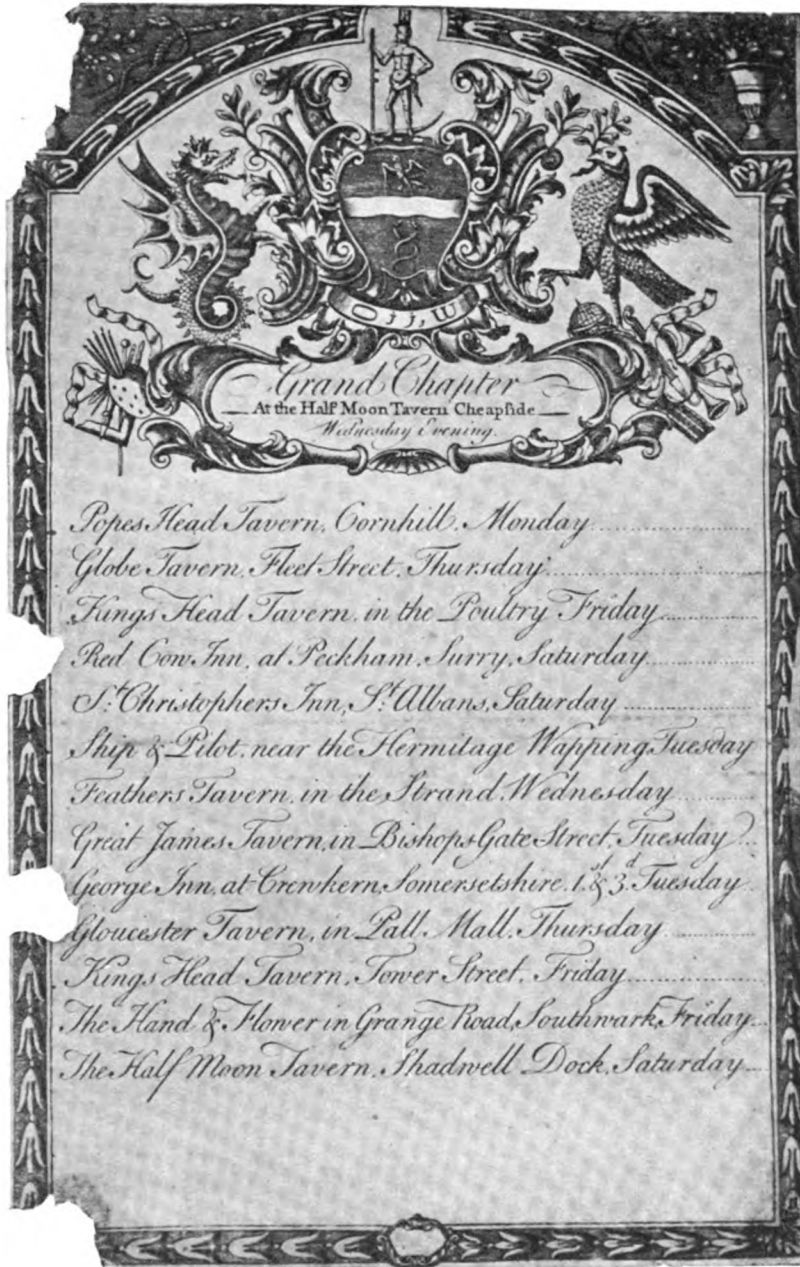 Grand Chapter
At the Half Moon Tavern Cheapſide
Wednesday Evening.
Popes Head Tavern, Cornhill, Monday
Globe Tavern, Fleet Street, Thursday
Kings Head Tavern, in the Poultry Friday
Red Cow Inn, at Peckham, Surry, Saturday
St. Christophers Inn, St. Albans, Saturday
Ship & Pilot, near the Hermitage Wapping Tuesday
Feathers Tavern, in the Strand, Wednesday
Great James Tavern, in Bishops Gate Street, Tuesday
George Inn, at Crewkern, Somersetshire, 1st & 3d Tuesday
Gloucester Tavern, in Pall Mall, Thursday
Kings Head Tavern, Tower Street, Friday
The Hand & Flower in Grange Road, Southwark, Friday
The Half Moon Tavern, Shadwell Dock, Saturday